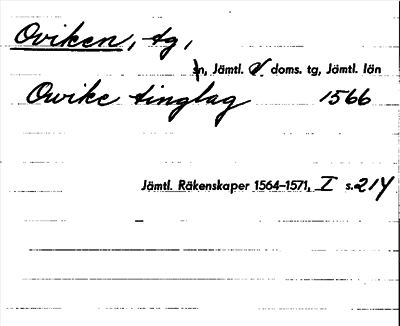 Oviken, tg,
sn, Jämtl. V. doms. tg, Jämtl. län
Owike tinglag 1566
Jämtl. Räkenskaper 1564–1571, I s. 214